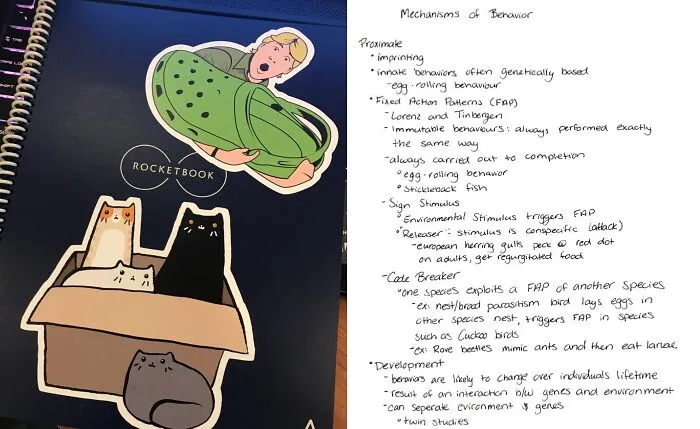 TAB
CAPS LO
ROCKETBOOK
Mechanisms of Behavior
Proximate
• imprinting
• innate behaviors often genetically based
- egg-rolling behaviour
• Fixed Action Patterns (FAP)
- Lorenz and Tinbergen
- Immutable behaviours: always performed exactly
the same way
- always carried out to completion
° egg-rolling behavior
° Stickleback fish
- Sign Stimulus
° Environmental Stimulus triggers FAP
° "Releaser": stimulus is conspecific (attack)
- european herring gulls peck @ red dot
on adults, get regurgitated food
- Code Breaker
° one species exploits a FAP of another species
- ex: nest/brood parasitism bird lays eggs in
other species nest, triggers FAP in species
such as Cuckoo birds
- ex: Rove beetles mimic ants and then eat larvae
• Development
- behaviors are likely to change over individuals lifetime
- result of an interaction b/w genes and environment
- can seperate evironment & genes
° twin studies